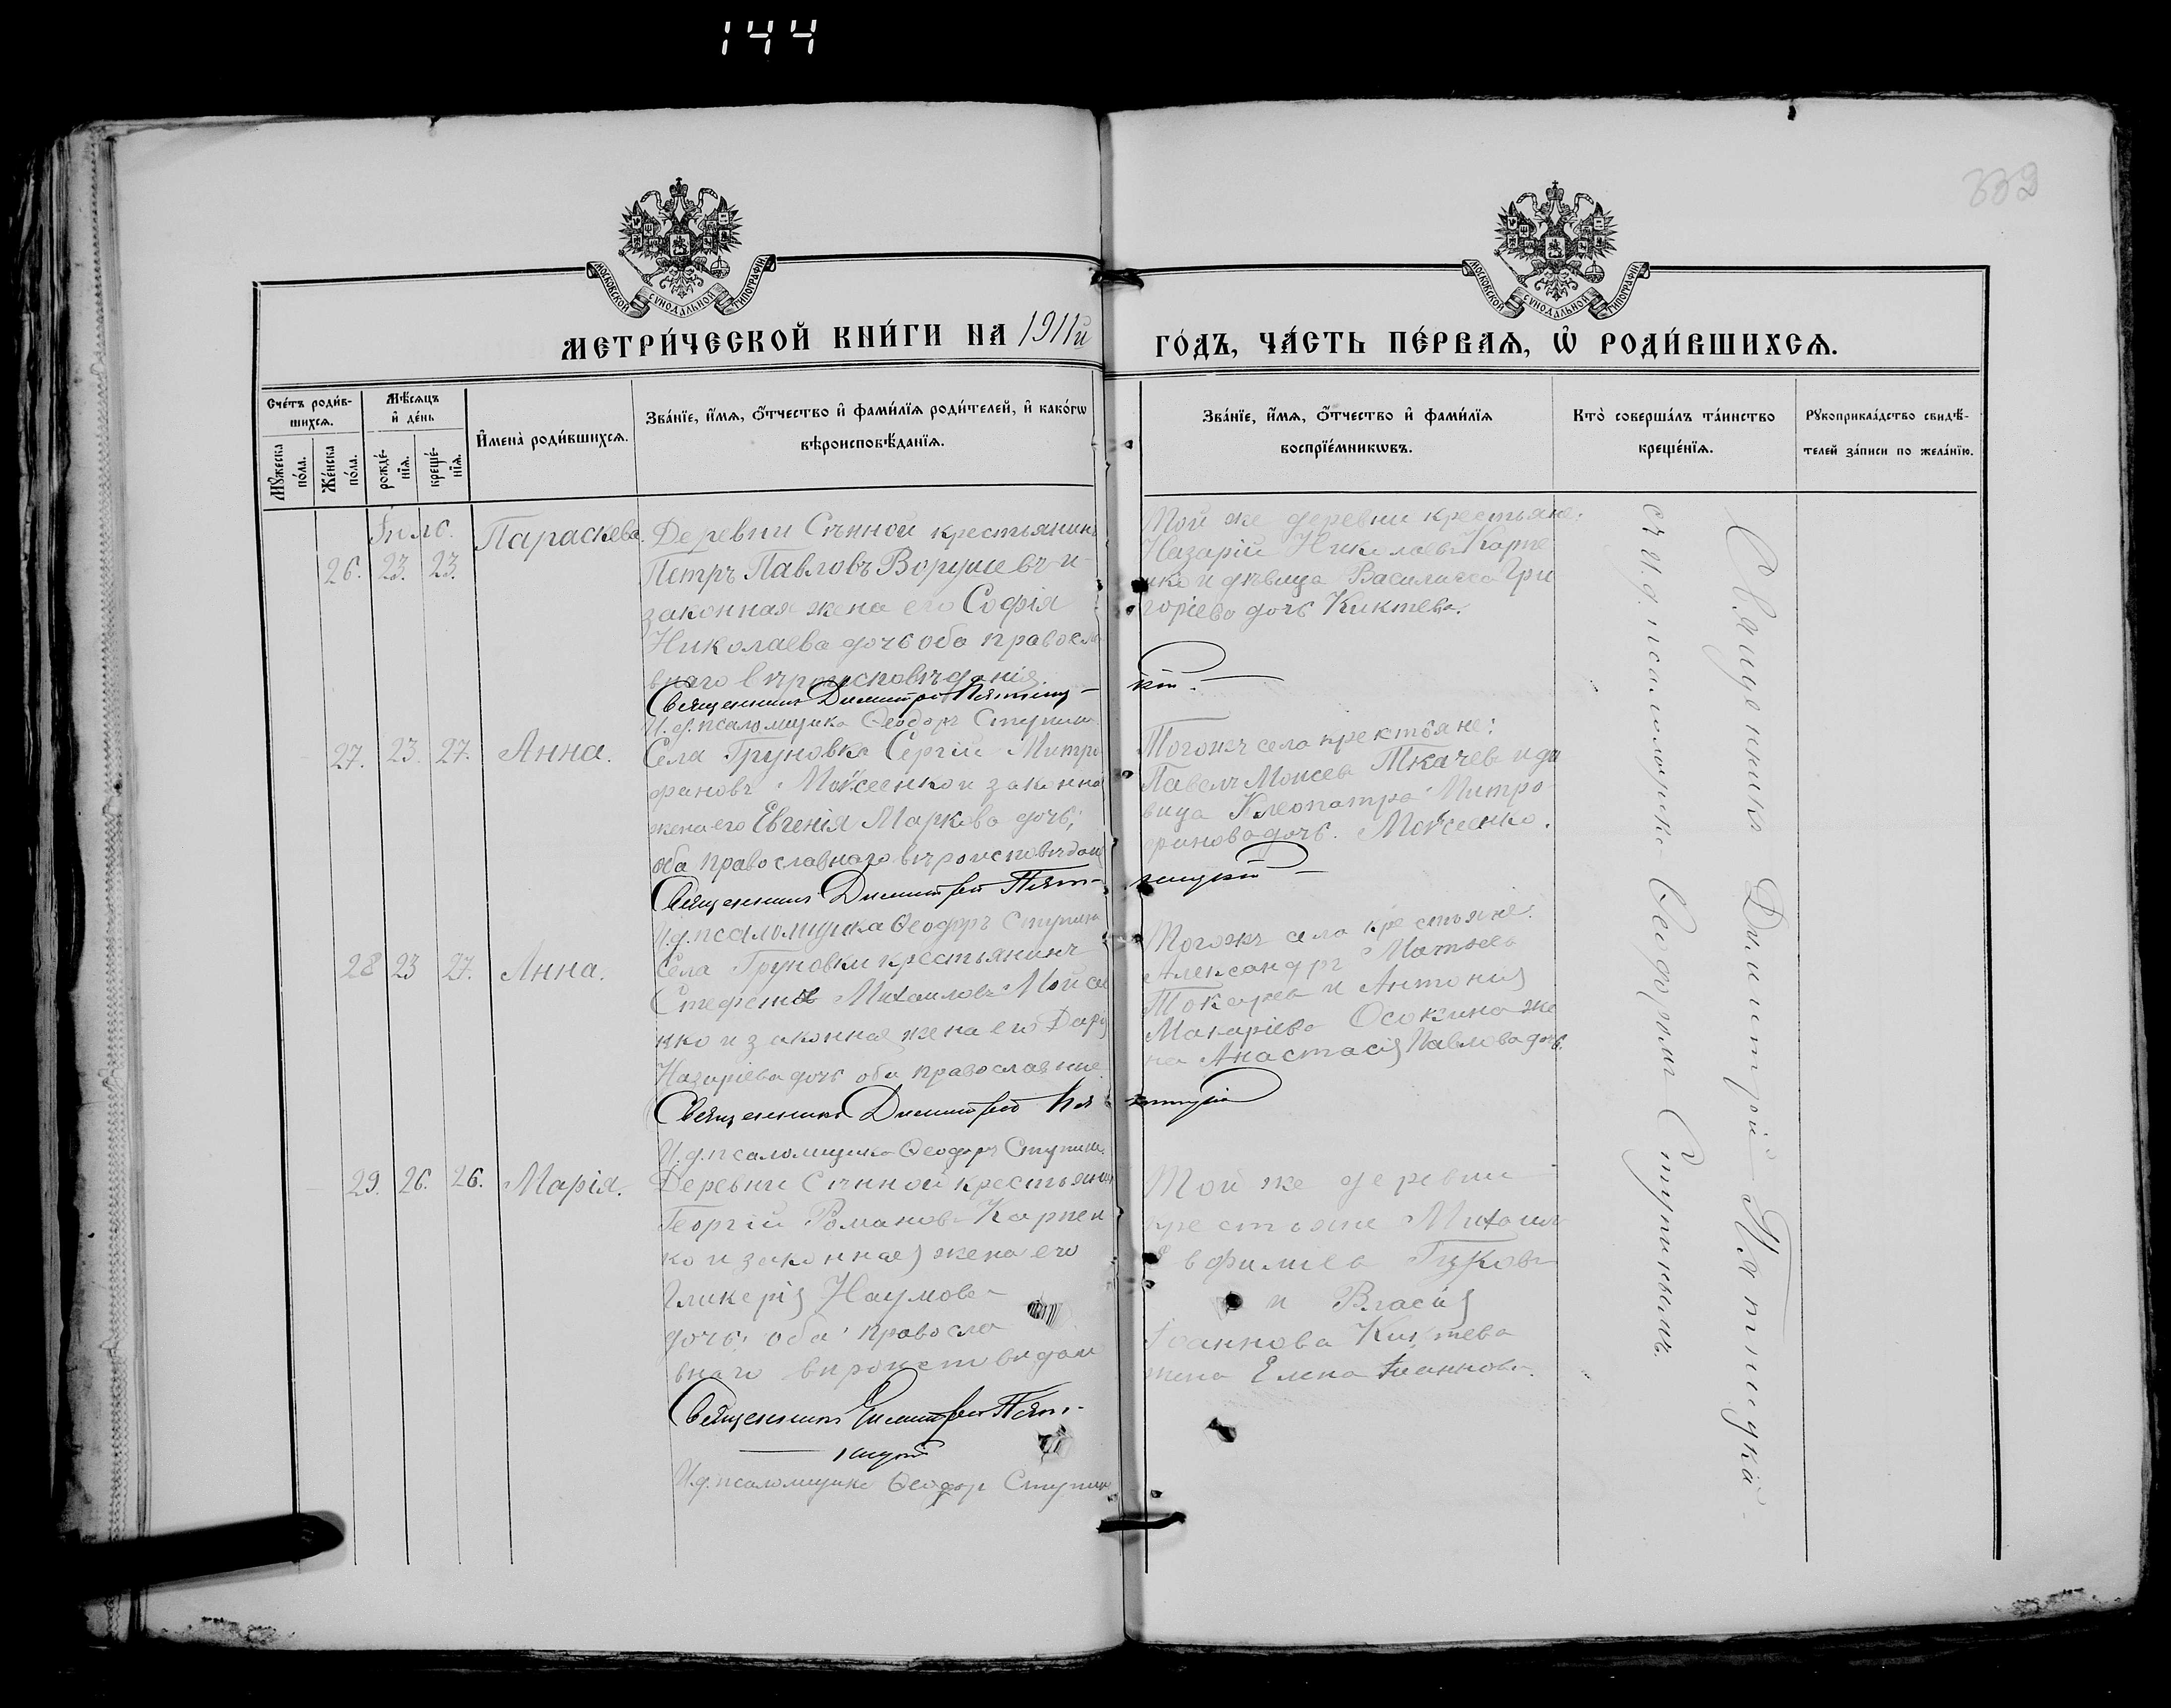 144
332
МОСКОВСКОЙ СѴНОДАЛЬНОЙ ТИПОГРАФІИ
МОСКОВСКОЙ СѴНОДАЛЬНОЙ ТИПОГРАФІИ
МЕТРИ́ЧЕСКОЙ КНИ́ГИ НА 1911й
ГО́ДЪ, ЧА́СТЬ ПЕ́РВАѦ, Ѡ҆ РОДИ́ВШИХСѦ.
Сче́тъ роди́в-
шихсѧ.
Мꙋ́жеска
по́ла.
Же́нска
по́ла.
Мѣ́сѧцъ
и҆ де́нь
рожде́-
нїѧ.
креще́-
нїѧ.
И҆мена̀ роди́вшихсѧ.
Зва́нїе, и҆́мѧ, ѻ҆́тчество и҆ фами́лїѧ роди́телей, и҆ како́гѡ
вѣроисповѣ́данїѧ.
Зва́нїе, и҆́мѧ, ѻ҆́тчество и҆ фами́лїѧ
воспрїе́мникѡвъ.
Кто̀ соверша́лъ та́инство
креще́нїѧ.
Рꙋкоприкла́дство свидѣ́-
телей за́писи по жела́нїю.
Іюль.
26. 23. 23.
Параскева.
Деревни Сѣнной крестьянинъ
Петръ Павловъ и
законная жена его Софія
Николаева дочь оба правосла
внаго вѣроисповѣданія.
Священникъ Димитрій Пятниц-
кій.
И. д. псаломщика Ѳеодоръ Ступин
Той же деревни крестьяне:
Назарій Николаевъ Карпе
нко и дѣвица Василисса Гри
горіева дочь Киктева.
27. 23. 27.
Анна.
Села Груновка Сергій Митро
фановъ Мойсеенко и законна
жена его Евгенія Маркова дочь;
оба православнаго вѣроисповѣдан
Священникъ Димитрій Пят-
ницкій
И. д. псаломщика Ѳеодоръ Ступин
Тогожъ села крестьяне:
Павелъ Моисеев Ткачев и дѣ
вица Клеопатра Митро
фанова дочь. Мойсеенко.
28 23 27.
Анна.
Села Груновки крестьянинъ
Стефанъ Михаиловъ Мойсее
нко и законная жена его Дарія
Назаріева дочь оба православные.
Священникъ Димитрій Пят
ницкій
И. д. псаломщика Ѳеодоръ Ступин.
Тогожъ села крестьяне:
Александръ Матвеев
Токарев и Антонія
Макаріева Осокина же
на Анастасія Павлова дочь.
29. 26. 26.
Марія.
Деревни Сѣнной крестьянин
Георгій Романовъ Карпен
ко и законная жена его
Гликерія Наумова
дочь; оба правосла
внаго вѣроисповѣдан
Священникъ Димитрій Пят-
ницкій
И. д. псаломщика Ѳеодор Ступин
Той же деревни
крестьяне Михаилъ
Евфиміев
и Власія
Іоаннова Киктева
жена Елена Іоаннова.
Священникъ Димитрій Пятницкій
съ и. д. псаломщика Ѳеодоромъ Ступинымъ.